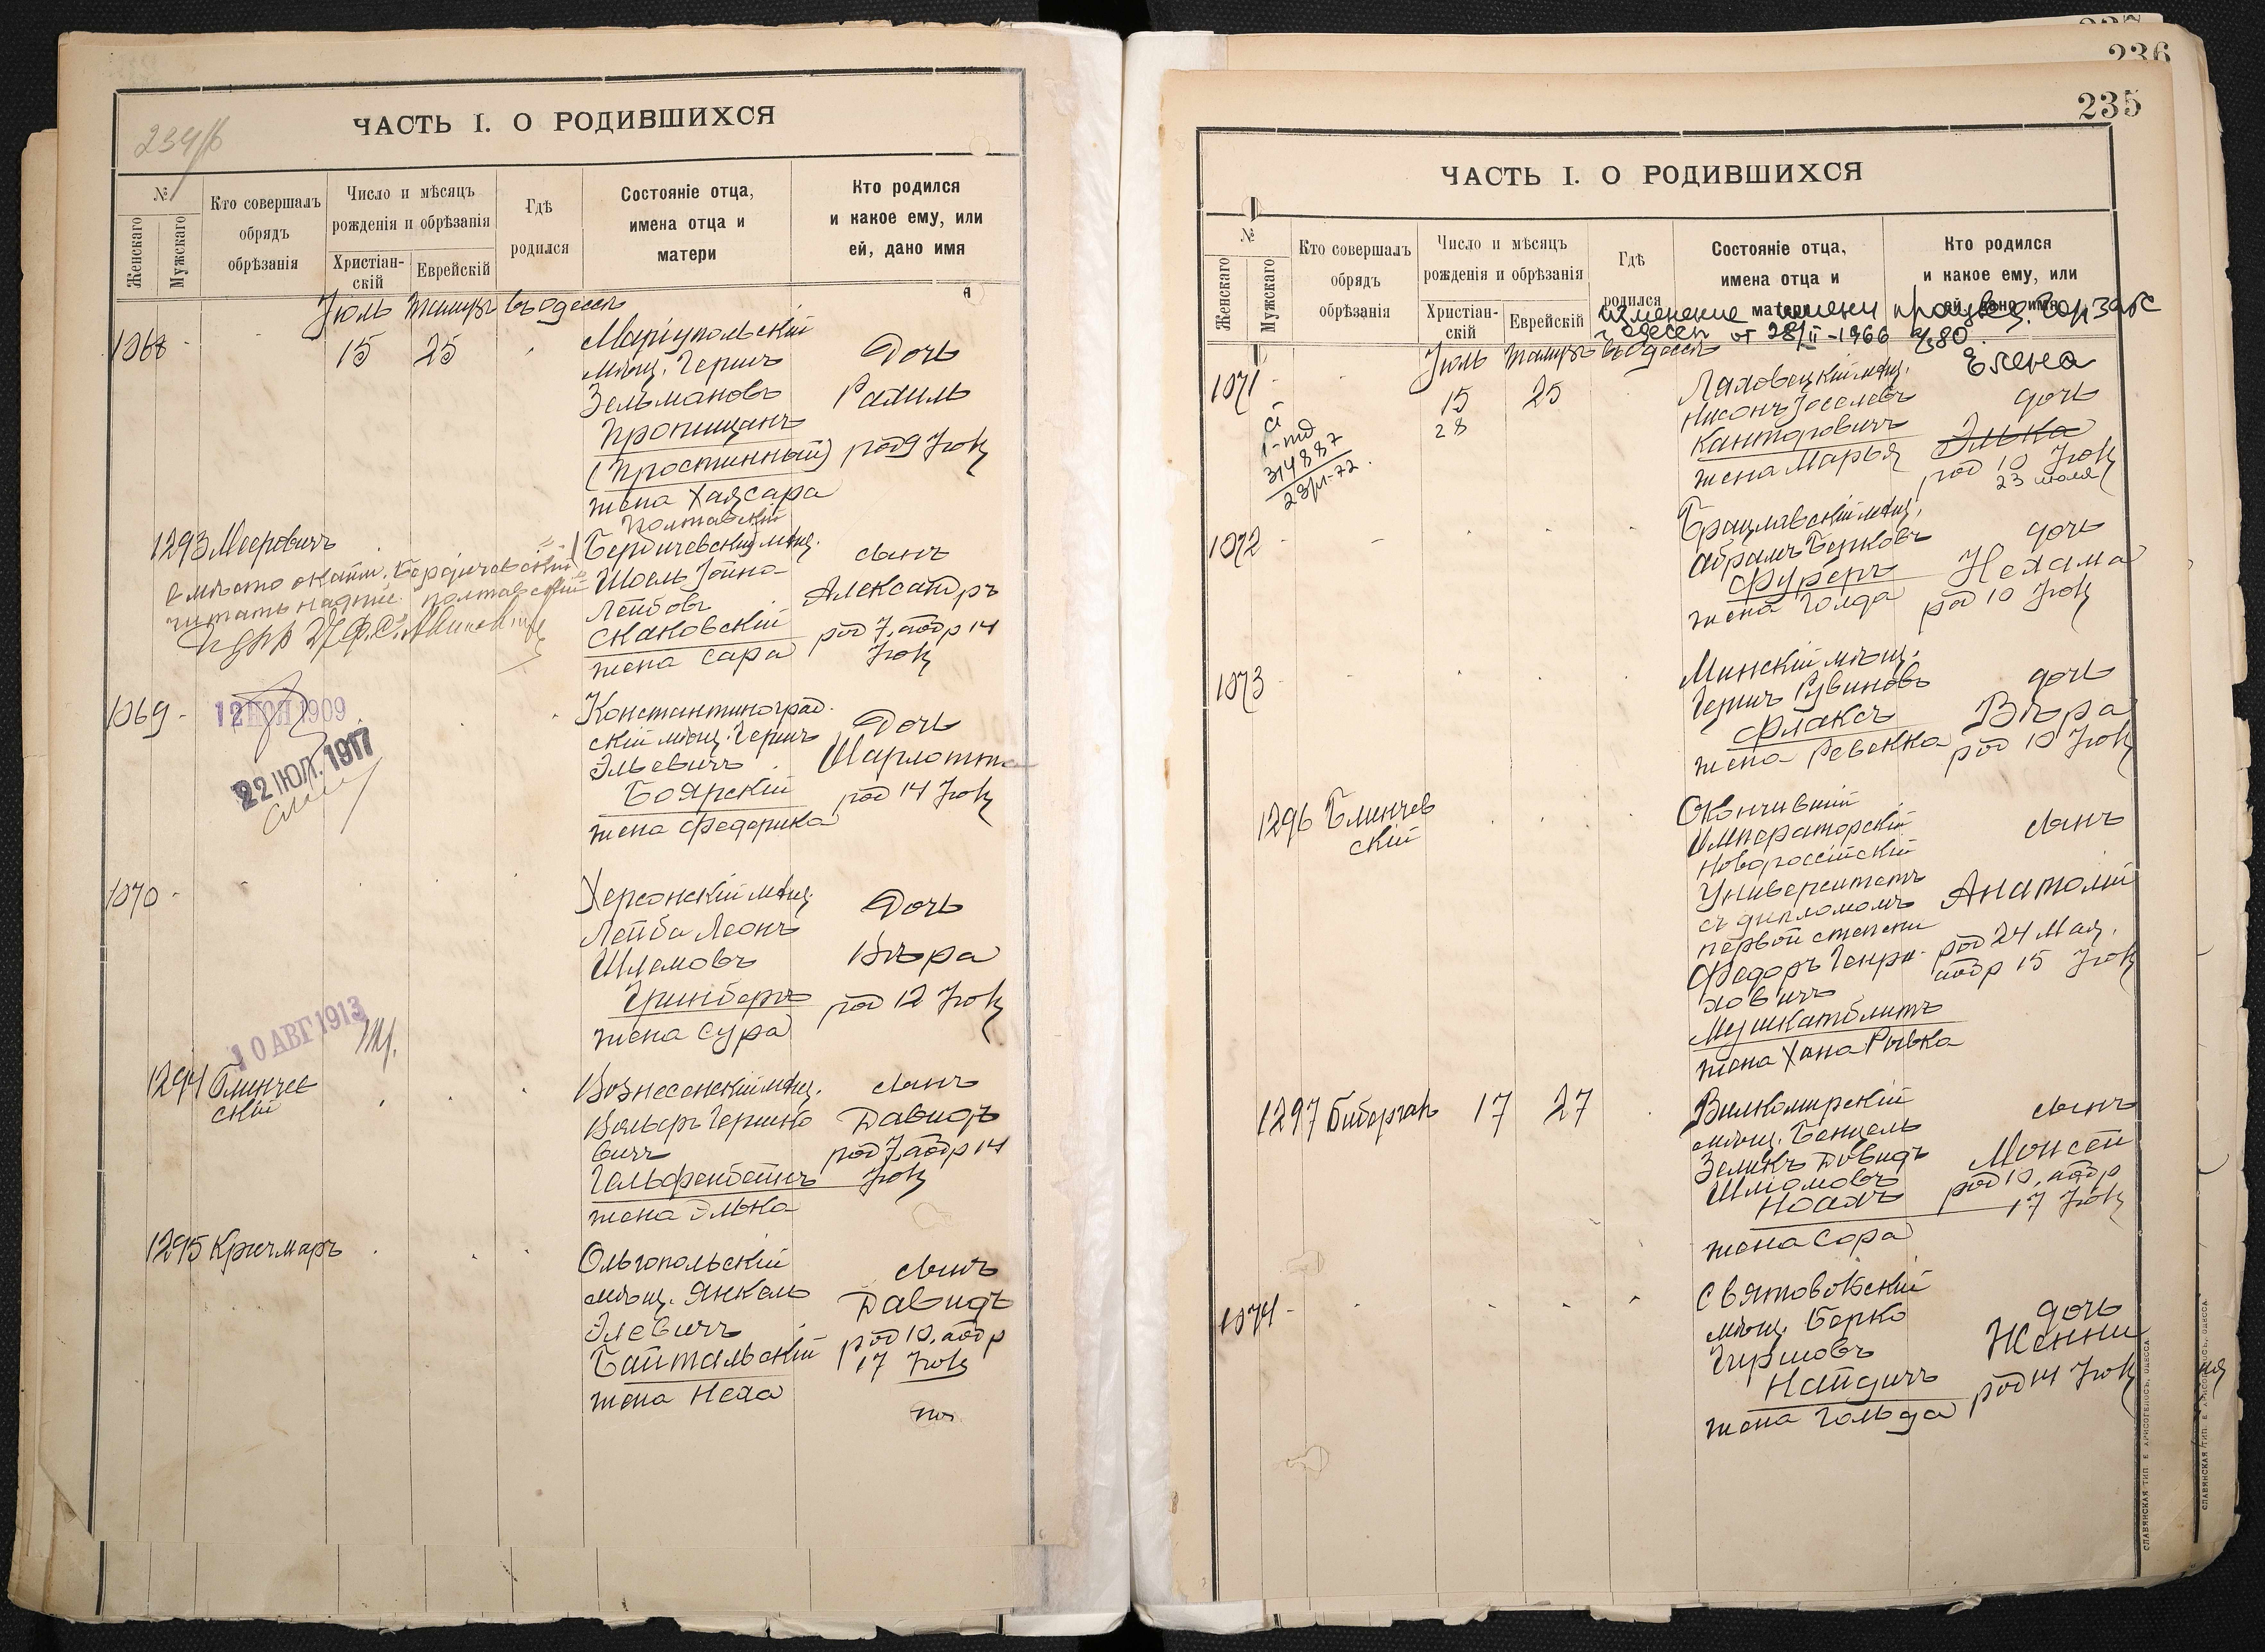 234/б
ЧАСТЬ I. О РОДИВШИХСЯ
№
Женскаго
Мужскаго
Кто совершалъ
обрядъ
обрѣзанія
Число и мѣсяцъ
рожденія и обрѣзанія
Христіан-
скій
Еврейскій
Гдѣ
родился
Состояніе отца,
имена отца и
матери
Кто родился
и какое ему, или
ей, дано имя
Іюль Тамузъ въ Одессѣ
1068
15 25
Маріупольскій
мѣщ. Гершъ
Зельмановъ
Пропищанъ
(Простинный)
жена Хаясара
Дочь
Рахиль
род 9 Іюля
1293 Мееровичъ
вмѣсто Бердичевскій
читать надпис. "Полтавскій"
Полтавскій
Бердичевскій мѣщ.
Шоель Іойна-
Лейбовъ
Скаковскій
жена Сара
сынъ
Александръ
род 7, аобр 14
Іюля
1069
12 НОЯ 1909
22 ІЮЛ. 1917
Константиноград-
скій мѣщ. Гершъ
Эльевичъ
Боярскій
жена Федерика
Дочь
Шарлотта
род 14 Іюля
1070
Херсонскій мѣщ.
Лейба Леонъ
Шлемовъ
Гринбергъ
жена Сура
Дочь
Вѣра
род 12 Іюля
10 АВГ 1913
1294 Блинчев
скій
Вознесенскій мѣщ.
Вольфъ Гершко
вичъ
Гельфенбейнъ
жена Элька
сынъ
Давидъ
род 7, аобр 14
Іюля
1295 Кричмаръ
Ольгопольскій
мѣщ. Янкель
Элевичъ
Байтальскій
жена Неха
сынъ
Давидъ
род 10, аобр
17 Іюля
236
235
ЧАСТЬ I. О РОДИВШИХСЯ
№
Женскаго
Мужскаго
Кто совершалъ
обрядъ
обрѣзанія
Число и мѣсяцъ
рожденія и обрѣзанія
Христіан-
скій
Еврейскій
Гдѣ
родился
Состояніе отца,
имена отца и
матери
Кто родился
и какое ему, или
ей, дано имя
изменение имени произвед. Горзагс
г. Одессы от 28/II-1966 №80
Іюль Тамузъ въ Одессѣ
1071
15 25
28
314887
23/VI-72.
Ляховецкій мѣщ.
Нисонъ Іоселевъ
Канторовичъ
жена Марья
Елена
дочь
Элька
род 10 Іюля
23 июля
1072
Брацлавскій мѣщ.
Абрамъ Берковъ
Фурсръ
жена Голда
дочь
Нехама
род 10 Іюля
1073
Минскій мѣщ.
Гершъ Рувиновъ
Флаксъ
жена Ревекка
дочь
Вѣра
род 10 Іюля
1296 Блинчев
скій
Окончившій
Императорскій
Новороссійскій
Университетъ
съ дипломомъ
первой степени
Федоръ Генри-
ховичъ
Мушкатблитъ
жена Хана Рывка
сынъ
Анатолій
род 24 Мая,
аобр 15 Іюля
1297 Бибергалъ
17 27
Вилкомирскій
мѣщ. Бенцель
Зеликъ Довидъ
Шліомовъ
Ноахъ
жена Сора
сынъ
Моисей
род 10, аобр
17 Іюля
1074
Святовойскій
мѣщ. Берко
Гиршовъ
Найдичъ
жена Гольда
дочь
Женни
род 14 Іюля
СЛАВЯНСКАЯ ТИП. Е. ХРИСОГЕЛОСЪ, ОДЕССА
СЛАВЯНСКАЯ ТИП. Е. ХРИСОГЕЛОСЪ, ОДЕССА